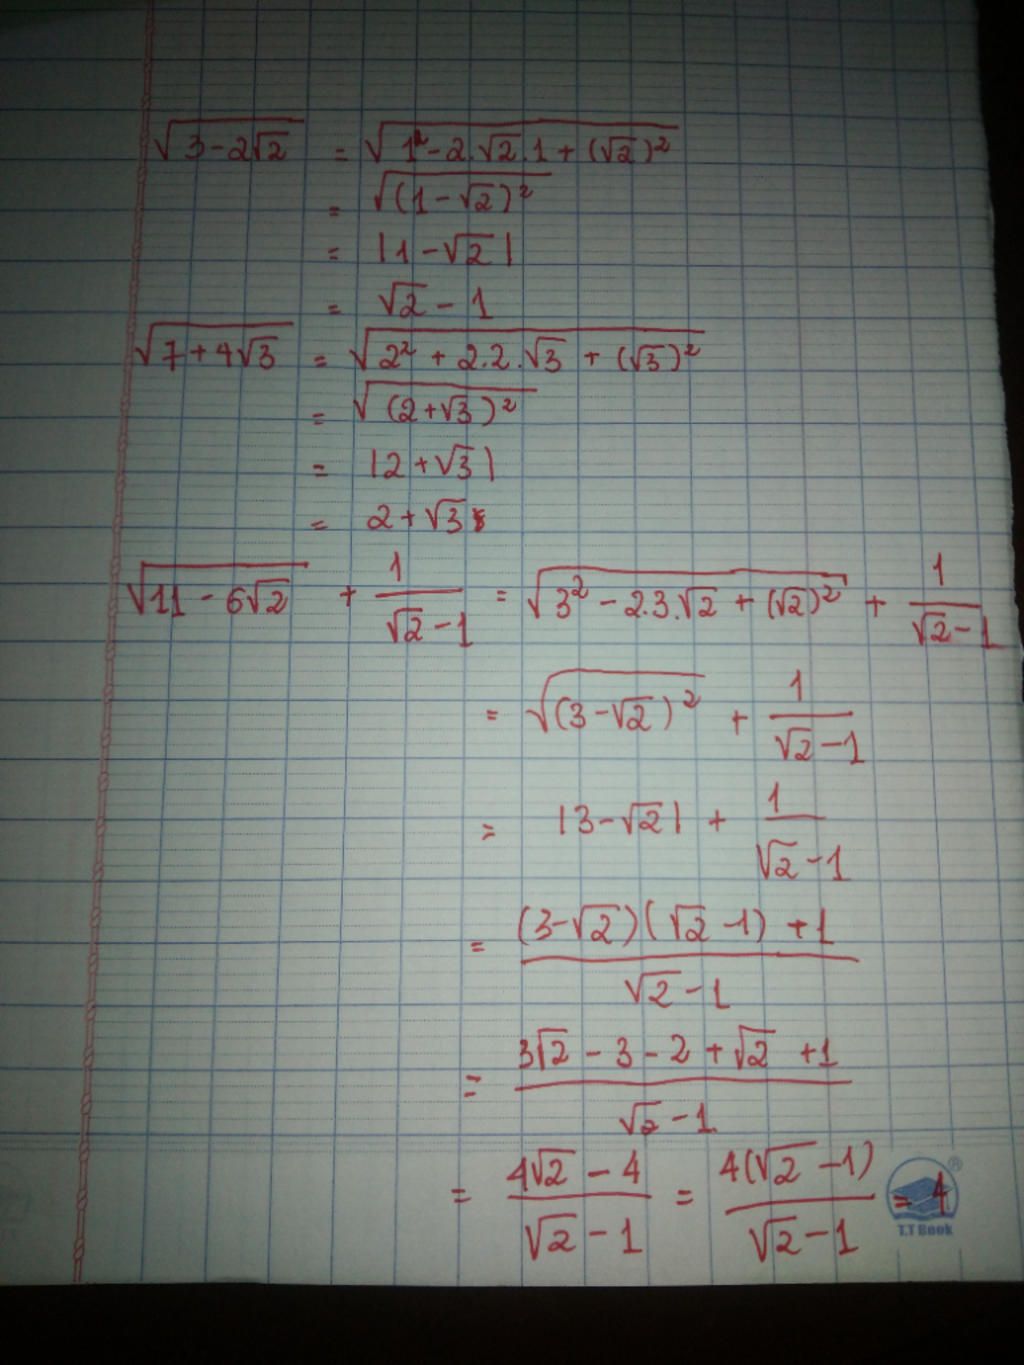 √(3-2√2) = √(1²-2.√2.1+(√2)²)
= √((1-√2)²)
= |1-√2|
= √2 - 1
√(7+4√3) = √(2² + 2.2.√3 + (√3)²)
= √((2+√3)²)
= |2+√3|
= 2+√3
√(11-6√2) + 1/(√2-1) = √(3² - 2.3.√2 + (√2)²) + 1/(√2-1)
= √((3-√2)²) + 1/(√2-1)
= |3-√2| + 1/(√2-1)
= ((3-√2)(√2-1)+1)/(√2-1)
= (3√2-3-2+√2+1)/(√2-1)
= (4√2-4)/(√2-1) = 4(√2-1)/(√2-1) = 4
®
T.T Book